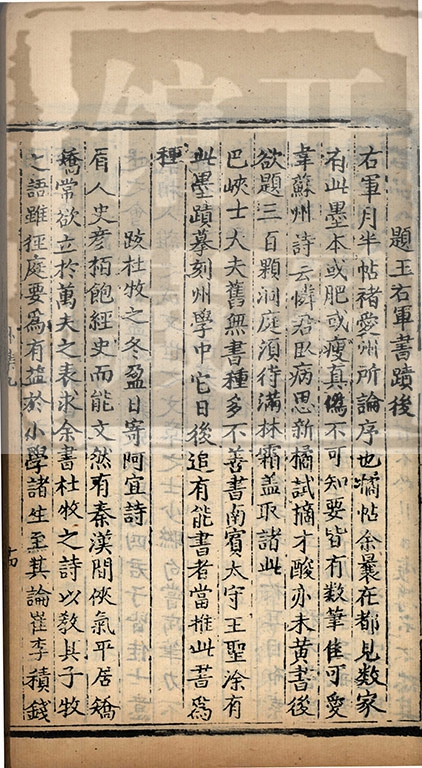 題王右軍書蹟後
右軍月半帖褚愛州所論序也橘帖余曩在都見数家
有此墨本或肥或瘦真偽不可知要皆有数筆佳可愛
韋蘇州詩云憐君臥病思新橘試摘才酸亦未黃書後
欲題三百顆洞庭須待滿林霜盖取諸此
巴峽士大夫舊無書種多不善書南賓太守王聖涂有
此墨蹟摹刻州學中它日後追有能書者當推此書爲
種
跋杜牧之冬盈日寄阿宜詩
眉人史彦栢飽經史而能文然有秦漢間俠氣平居矯
矯常欲立於萬夫之表求余書杜牧之詩以教其子牧
之語雖徑庭要爲有益於小學諸生至其論崔李積錢
外集九
十四